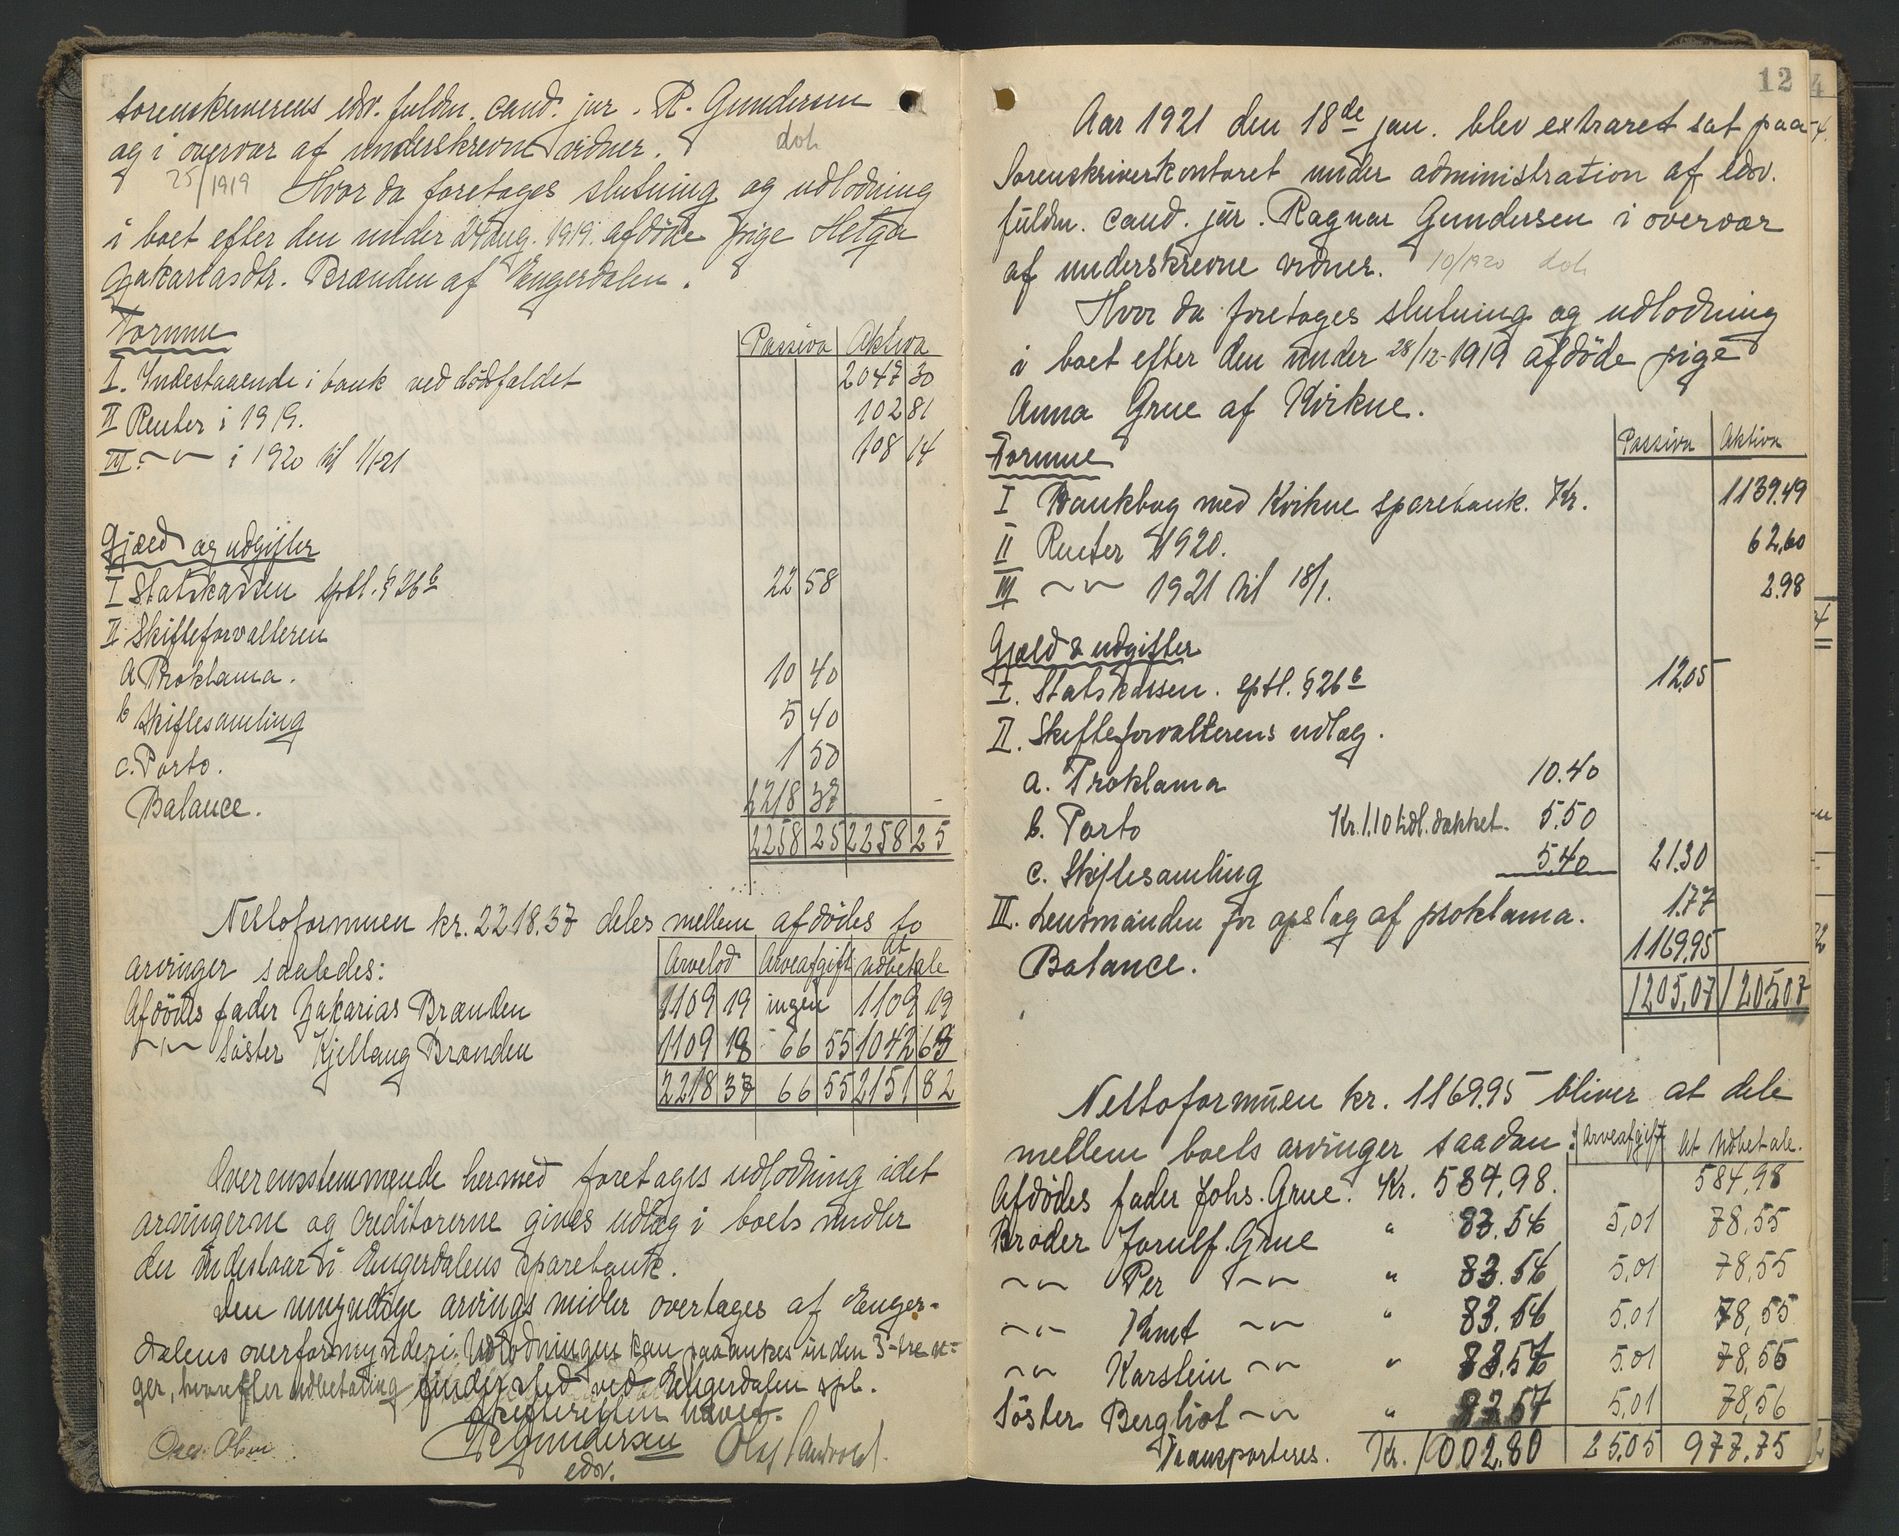 Sorenskriverens edsv. fuldm. cand. jur. R. Gundersen
og i overvær af underskrevne vidner. dok
25/1919 Hvor da foretages slutning og udlodning
i boet efter den under 24 aug. 1919 afdøde pige Helga
Zakariasdtr. Brænden af Engerdalen.
Formue
Passiva Aktiva
I. Indestaaende i bank ved dödsfaldet 2047 30
II Renter i 1919. 102 81
III -"- i 1920 til 1/1-21 108 14
Gjæld og udgifter
I Statskassen sptl. § 26 b 22 58
II Skifteforvalteren
a Proklama. 10 40
b Skiftesamling 5 40
c. Porto. 1 50
Balance. 2218 37
2258 25 2258 25
Nettoformuen kr. 2218.37 deles mellem afdødes to
arvinger saaledes: Arvelod Arveafgift At udbetale
Afdödes fader Zakarias Brænden 1109 19 ingen 1109 19
-"- söster Kjellaug Brænden 1109 18 66 55 1042 63
2218 37 66 55 2151 82
Overensstemmende hermed foretages udlodning idet
arvingerne og creditorerne gives udlæg i boets midler
der indestaar i Engerdalens sparebank.
Den umyndige arvings midler overtages af Enger-
dalens overformynderi. Udlodningen kan paaankes inden 3-tre u-
ger, hvorefter udbetaling finder sted ved Engerdalen spb.
Skifteretten hævet.
R Gundersen Olaf Sandvold.
edsv.
12
Aar 1921 den 18de jan. blev extraret sat paa
Sorenskriverkontoret under administration af edsv.
fuldm. cand. jur. Ragnar Gundersen i overvær
af underskrevne vidner. 10/1920 dok
Hvor da foretages slutning og udlodning
i boet efter den under 28/12-1919 afdöde pige
Anna Grue af Kvikne.
Passiva Aktiva
Formue
I Bankbog med Kvikne sparebank. Kr. 1139.49
II Renter 1920. 62,60
III -"- 1921 til 18/1. 2.98
Gjæld & udgifter
I. Statskassen. sptl. § 26 b 12,05
II. Skifteforvalterens udlæg.
a. Proklama 10.40
b. Porto Kr. 1.10 tidl. dækket. 5.50
c. Skiftesamling 5.40 21.30
III. Lensmanden for opslag af proklama. 1.77
Balance. 1169.95
1205,07 1205,07
Nettoformuen kr. 1169.95 bliver at dele
mellem boets arvinger saadan: Arveafgift At Udbetale.
Afdödes fader Johs. Grue. Kr. 584.98. 584,98
Broder Jorulf. Grue " 83.56 5,01 78,55
-"- Per -"- " 83.56 5,01 78,55
-"- Knut -"- " 83.56 5,01 78,55
-"- Karstein -"- " 83.57 5,01 78,56
Söster Bergliot -"- " 83.57 5,01 78,56
Transporteres. Kr. 1002.80 25.05 977.75